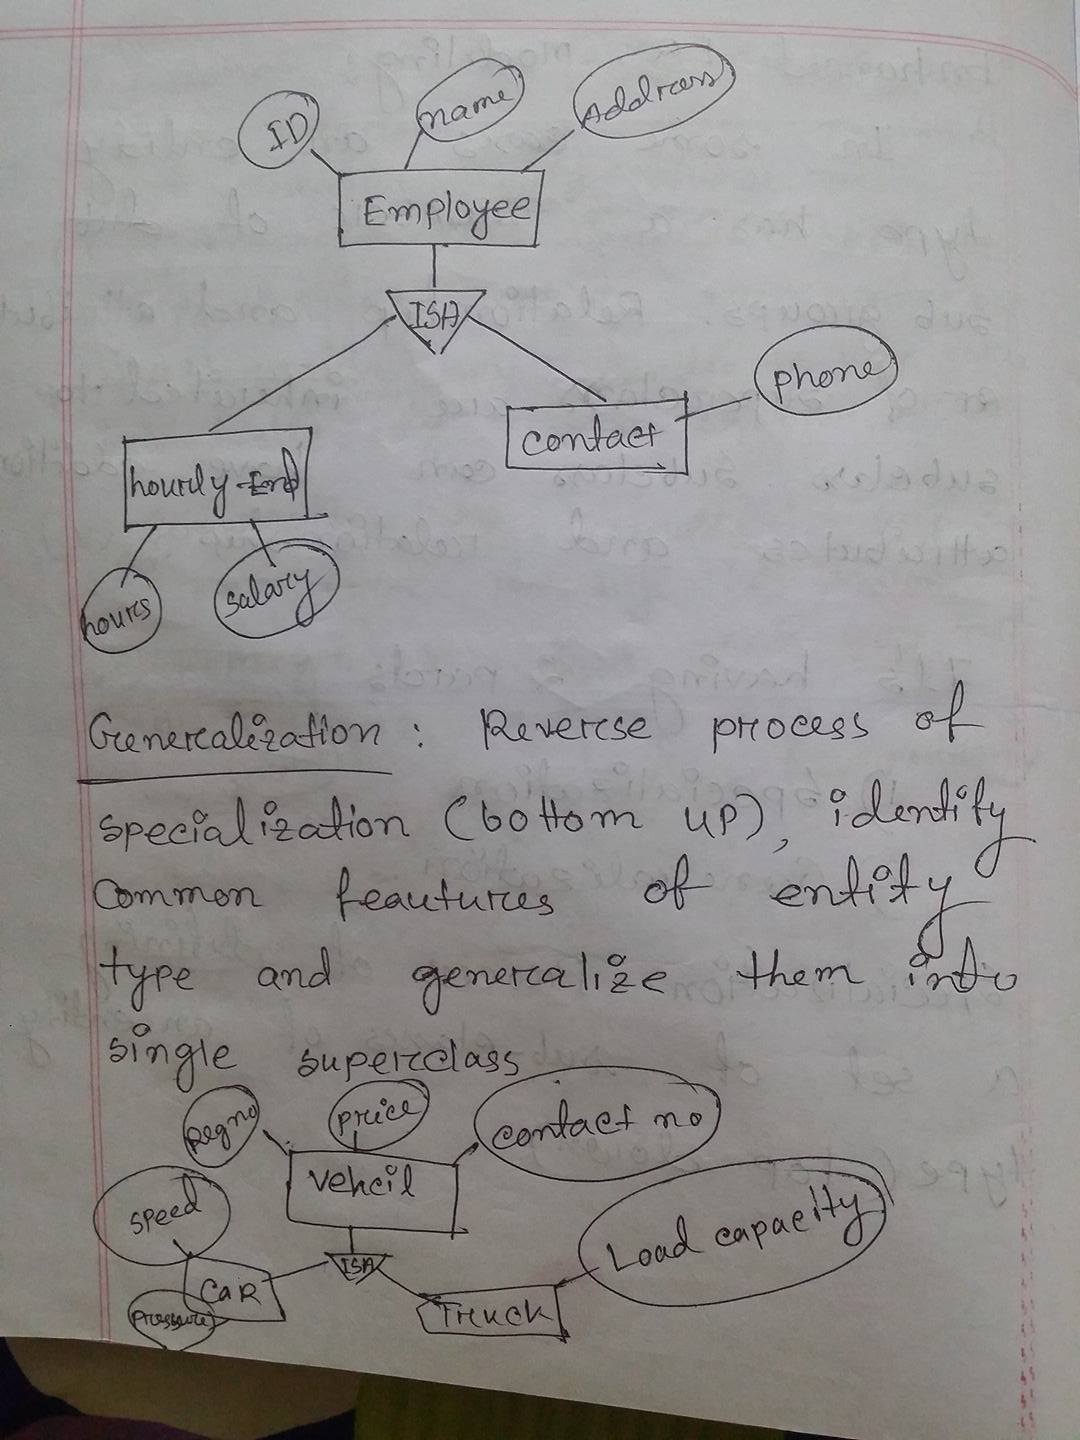 ID
name
Address
Employee
ISA
phone
contact
hourly-End
hours
salary
Generalization : Reverse process of
specialization (bottom up), identify
common feautures of entity
type and generalize them into
single superclass
Regno
price
contact no
vehcil
speed
ISA
Load capacity
CaR
Truck
pressure